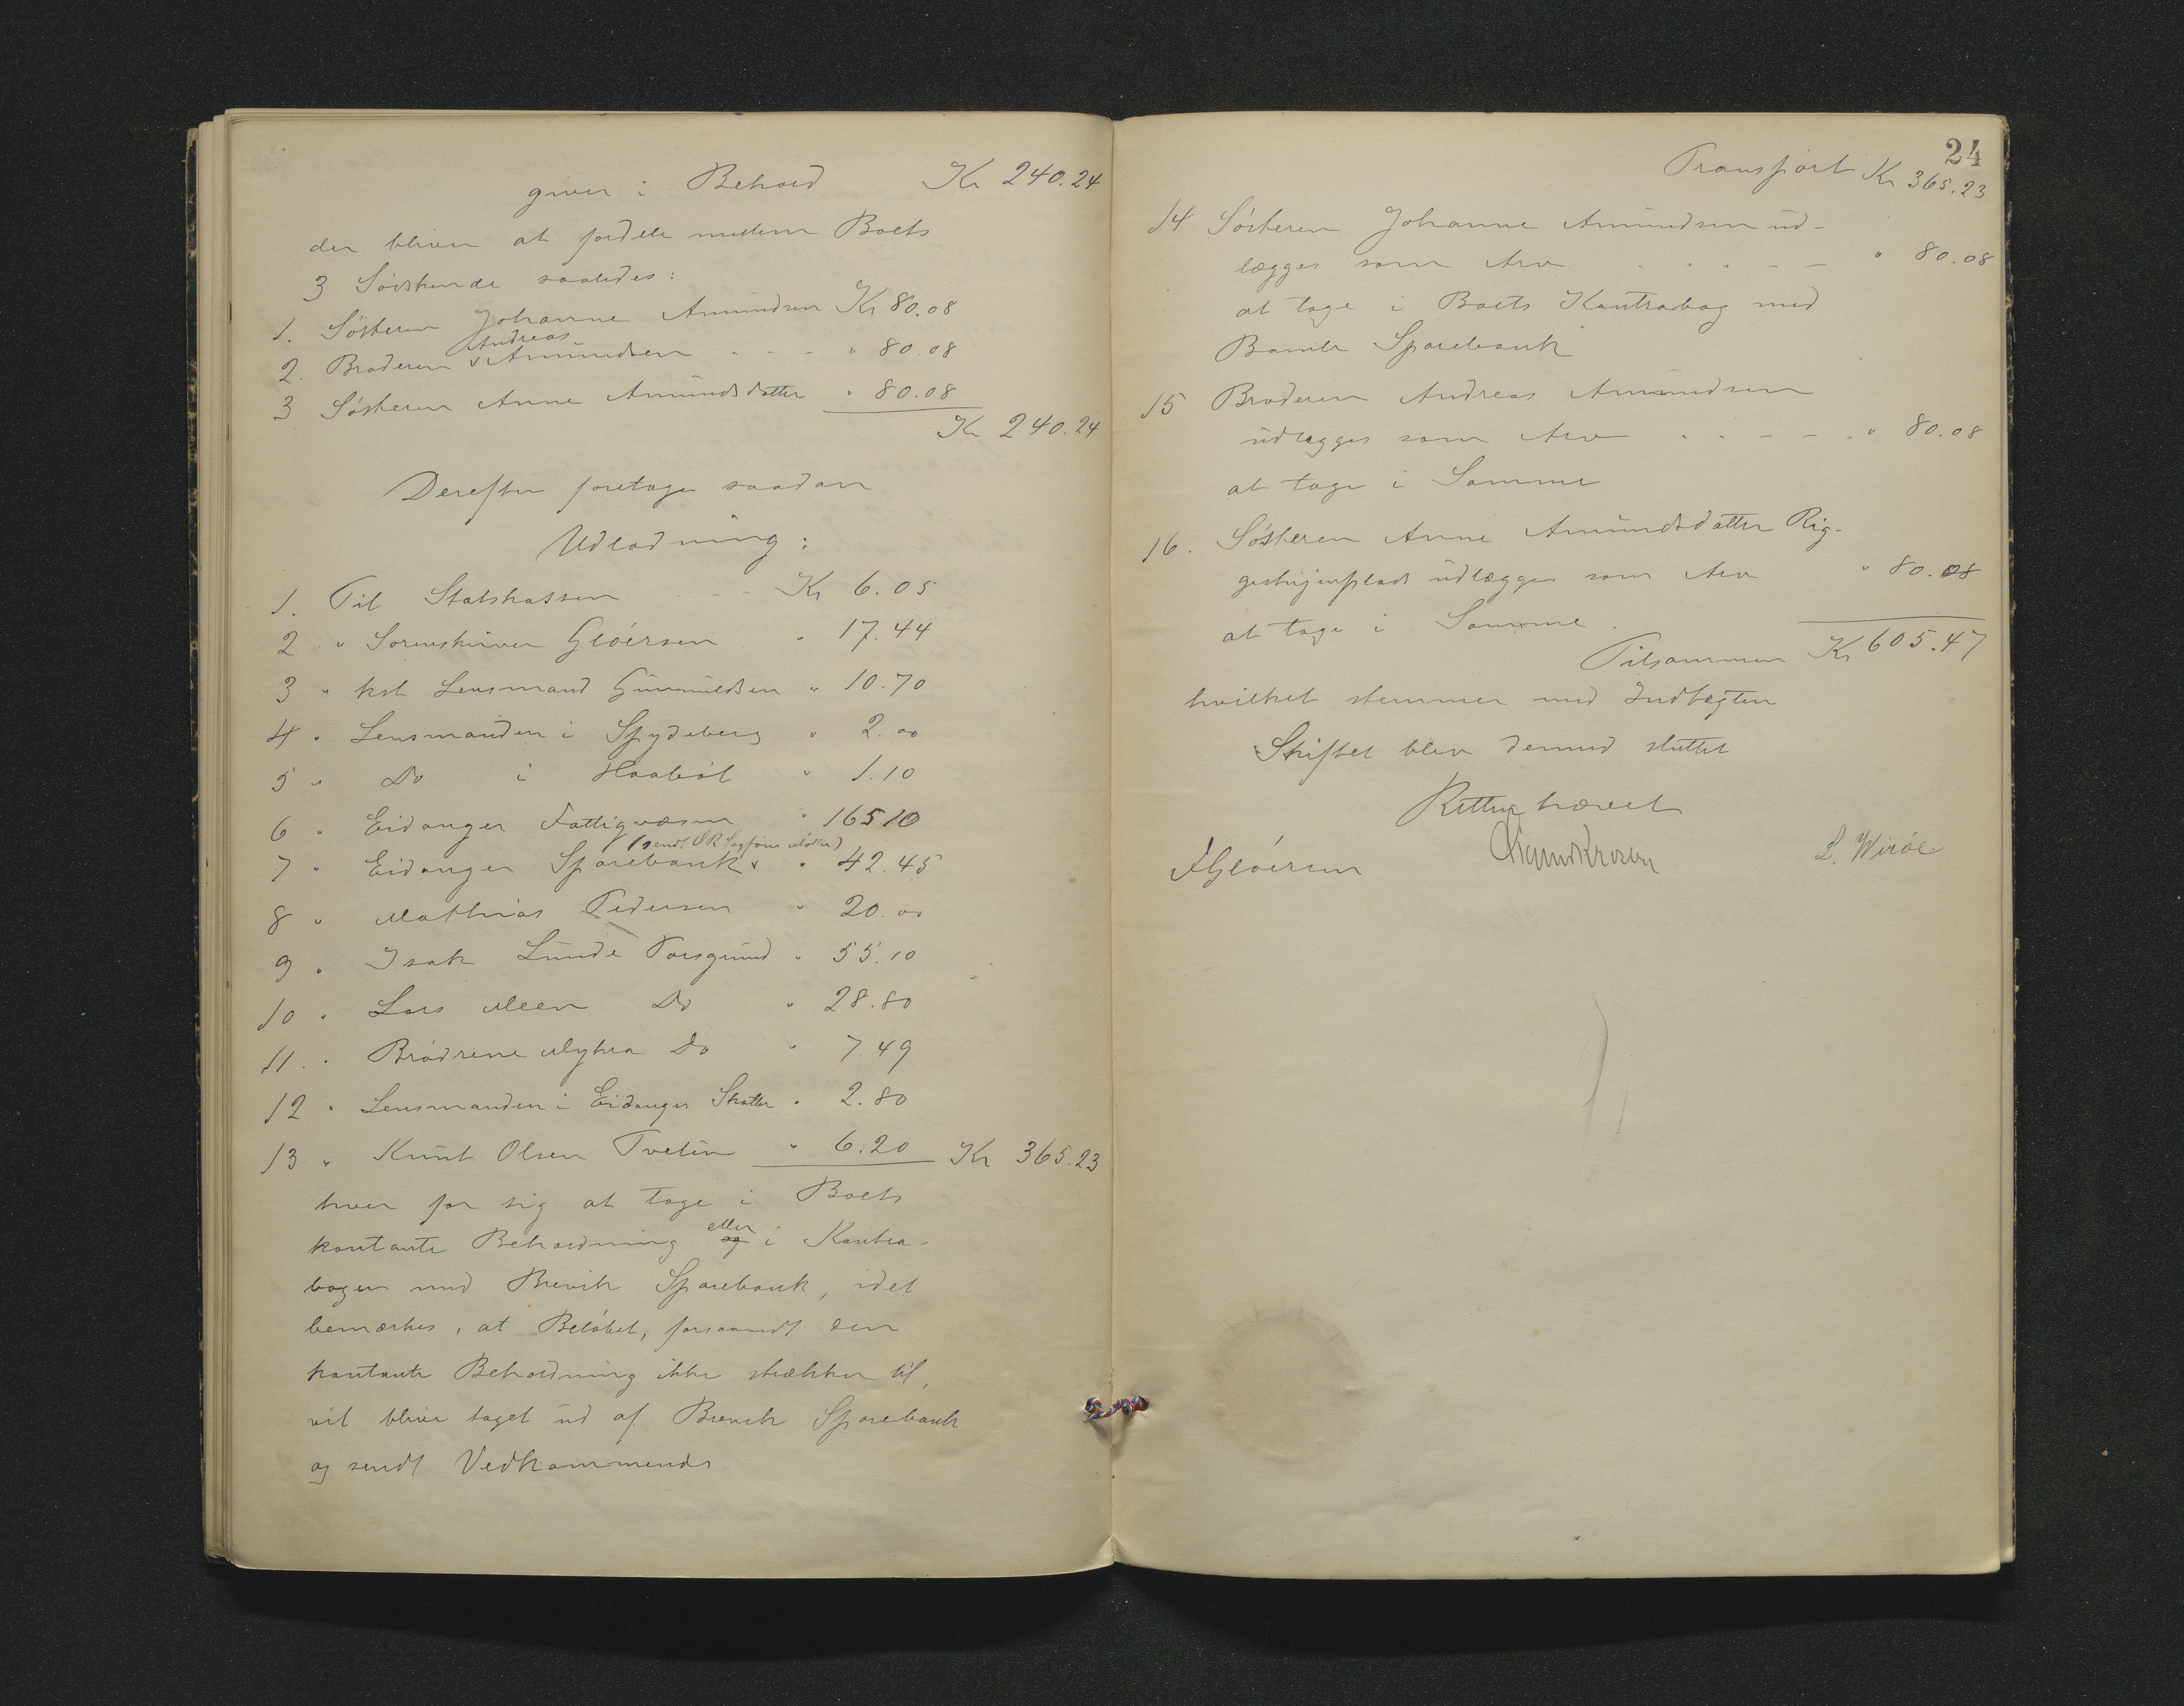 giver i Behold Kr 240.24
der bliver at fordele mellem Boets
3 Södskende saaledes:
1. Sösteren Johanne Amundsen Kr 80.08
Andreas
2. Broderen v Amundsen . . - " 80.08
3 Sösteren Anne Amundsdatter " 80.08
Kr 240.24
Derefter foretoges saadan
Udlodning:
1. Til Statskassen - - - Kr 6.05
2 " Sorenskriver Glöersen " 17.44
3 " kst Lensmand Gunnuldsen " 10.70
4 " Lensmanden i Spydeberg " 2.00
5 " Do i Haaböl " 1.10
6 " Eidanger Fattigvæsen " 165 10
(sendt OR Sagförer Möller)
7 " Eidanger Sparebank v " 42.45
8 " Mathias Pedersen " 20.00
9 " Isak Lunde Porsgrund " 55.10
10 " Lars Meen Do " 28.80
11. " Brödrene Myhra Do " 7.49
12 " Lensmanden i Eidanger Skatter " 2.80
13 " Knut Olsen Tveten " 6.20 Kr 365.23
hver for sig at tage i Boets
eller
kontante Beholdning og i Kontra-
bogen med Brevik Sparebank, idet
bemærkes, at Belöbet, forsaavidt den
kontante Beholdning ikke strækker til,
vil blive taget ud af Brevik Sparebank
og sendt Vedkommende
24
Transport Kr 365.23
14 Sösteren Johanne Amundsen ud-
lægges som Arv . . . . - - " 80.08
at tage i Boets Kontrabog med
Bamle Sparebank
15 Broderen Andreas Amundsen
udlægges som Arv . . - - - " 80.08
at tage i Samme
16. Sösteren Anne Amundsdatter Rig-
udlægges som Arv " 80.08
at tage i Samme.
Tilsammen Kr 605.47
hvilket stemmer med Indtægten
Skiftet blev dermed sluttet
Retten hævet
Glöersen
L. Wiröe